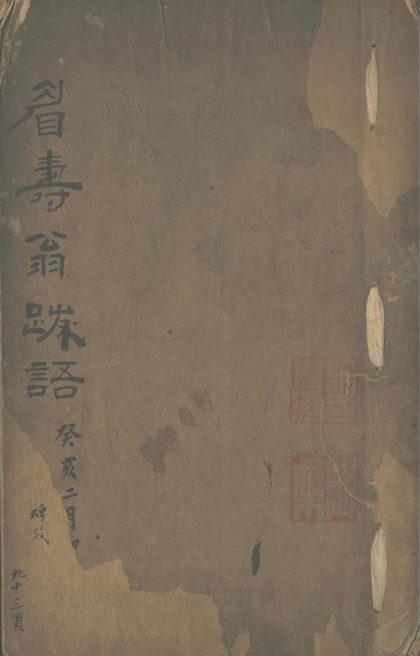 眉壽翁跋語
癸亥二月
碑孜
九十三頁